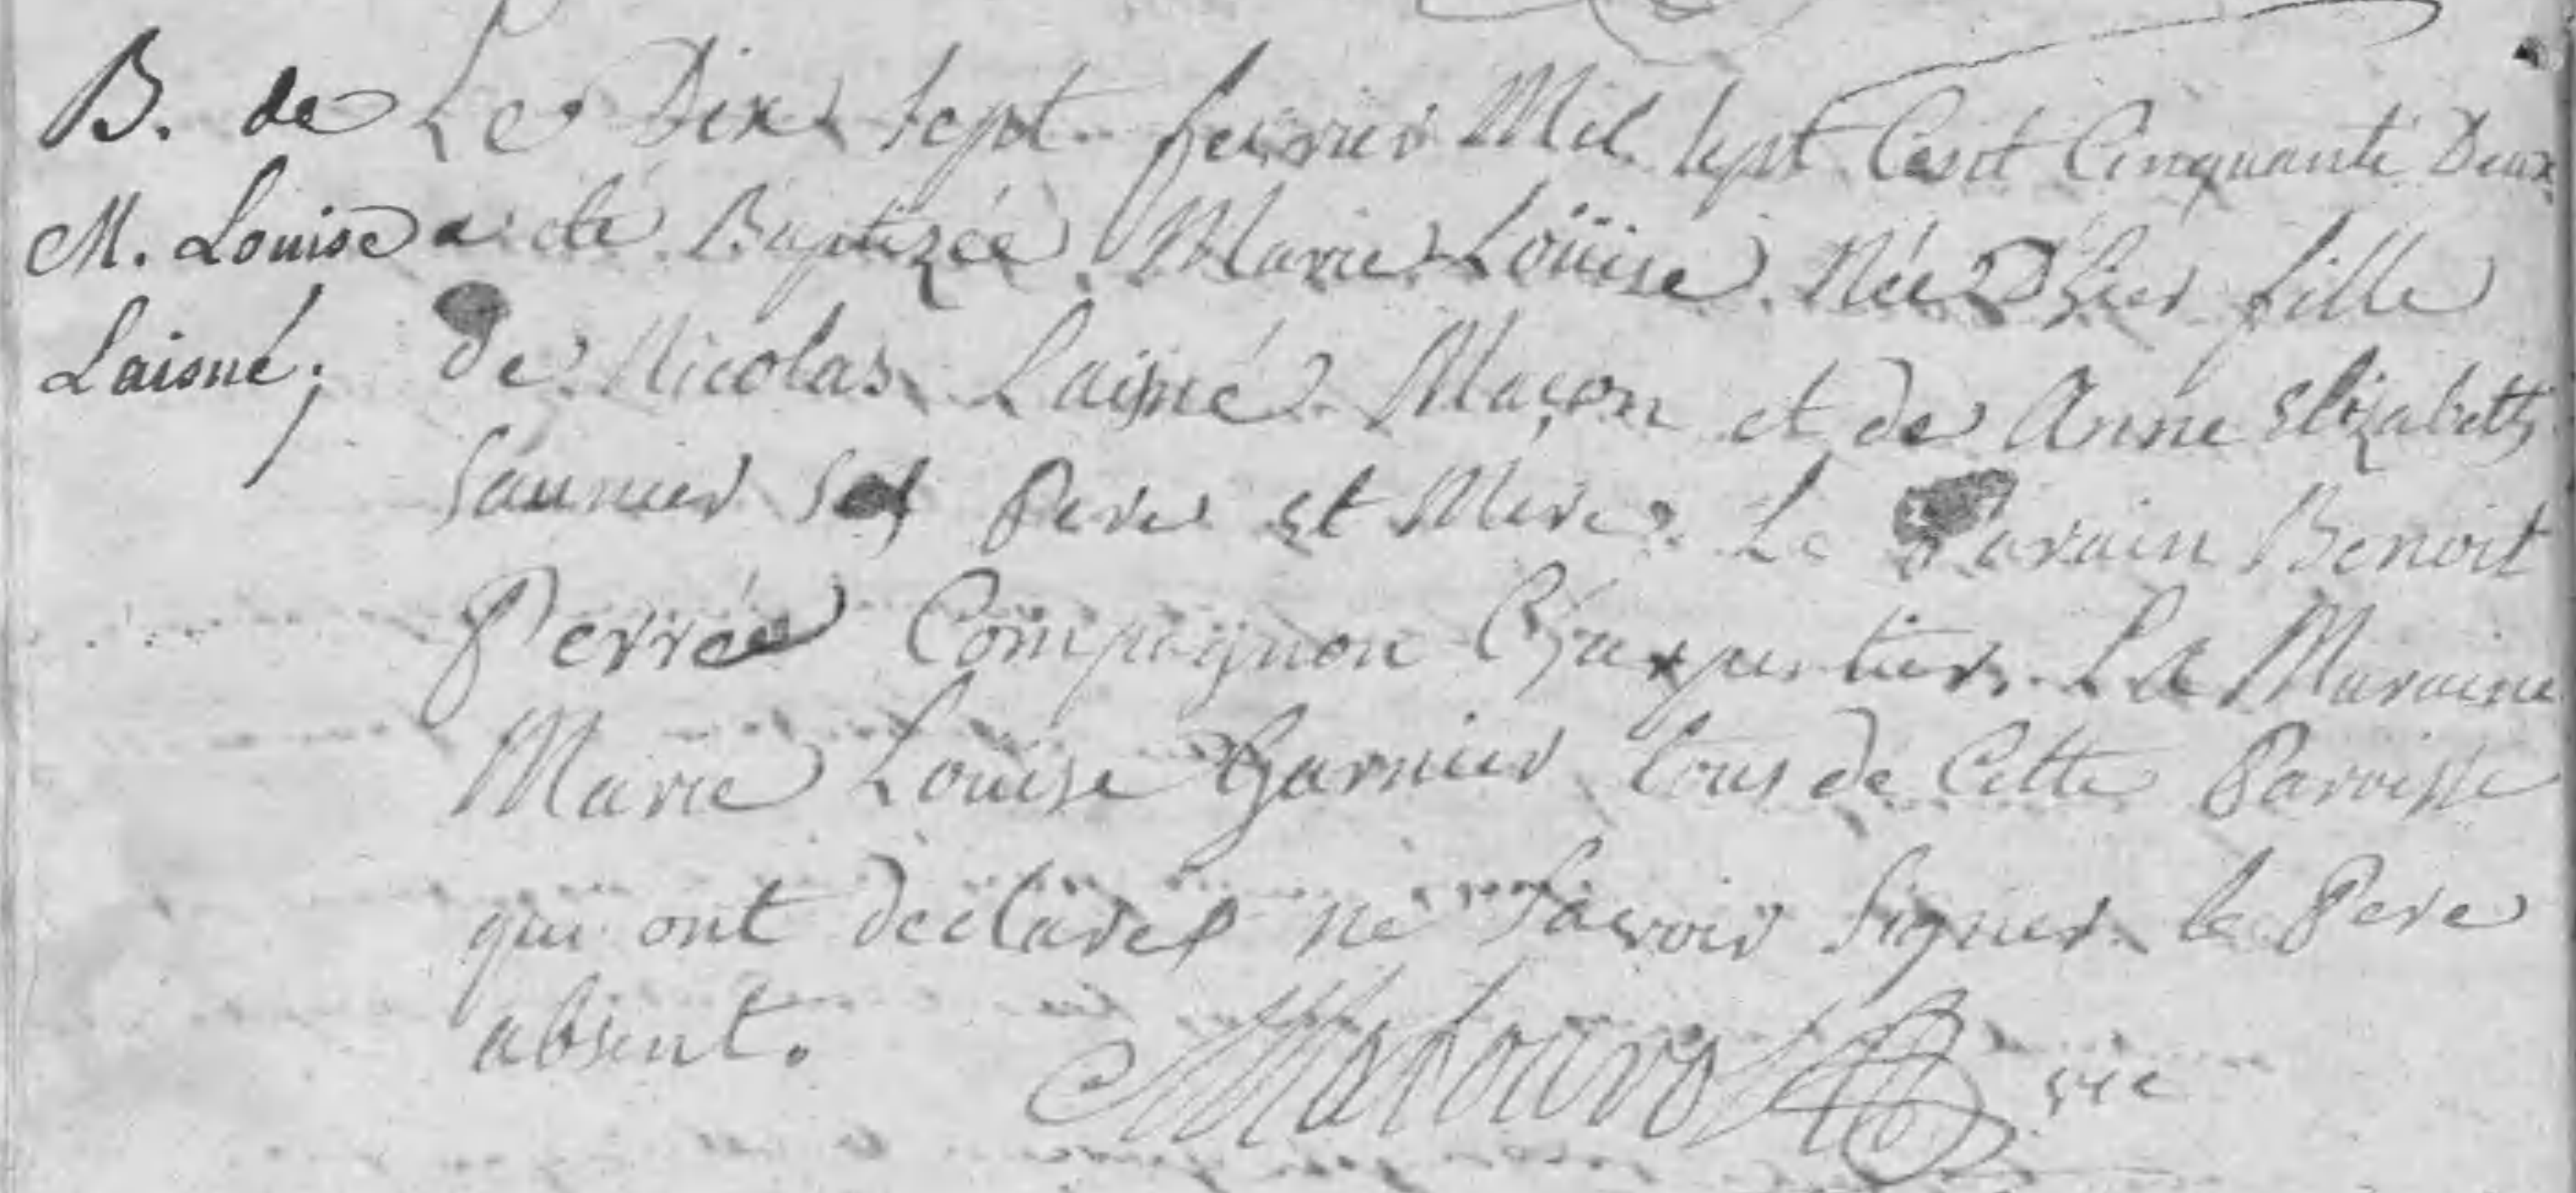 B. de
M. Louise
Laisné;
Le Dix Sept fevrier Mil Sept Cent Cinquante Deux
a été Baptizée Marie Loüise Née D'hier fille
de Nicolas Laisné Maçon et de Anne Elizabeth
Saunier Ses Pere et Mere. Le Parain Benoit
Perrée Compagnon Charpentier. La Maraine
Marie Louise Garnier tous de Cette Paroisse
qui ont déclarés ne Savoir Signer le Pere
absent.
vic